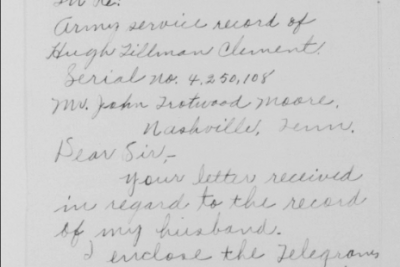 In Re:
Army service record of
Hugh Tillman Clement.
Serial No. 4,250,108
Mr. John Trotwood Moore,
Nashville, Tenn.
Dear Sir,-
Your letter received
in regard to the record
of my husband.
I enclose the Telegrams